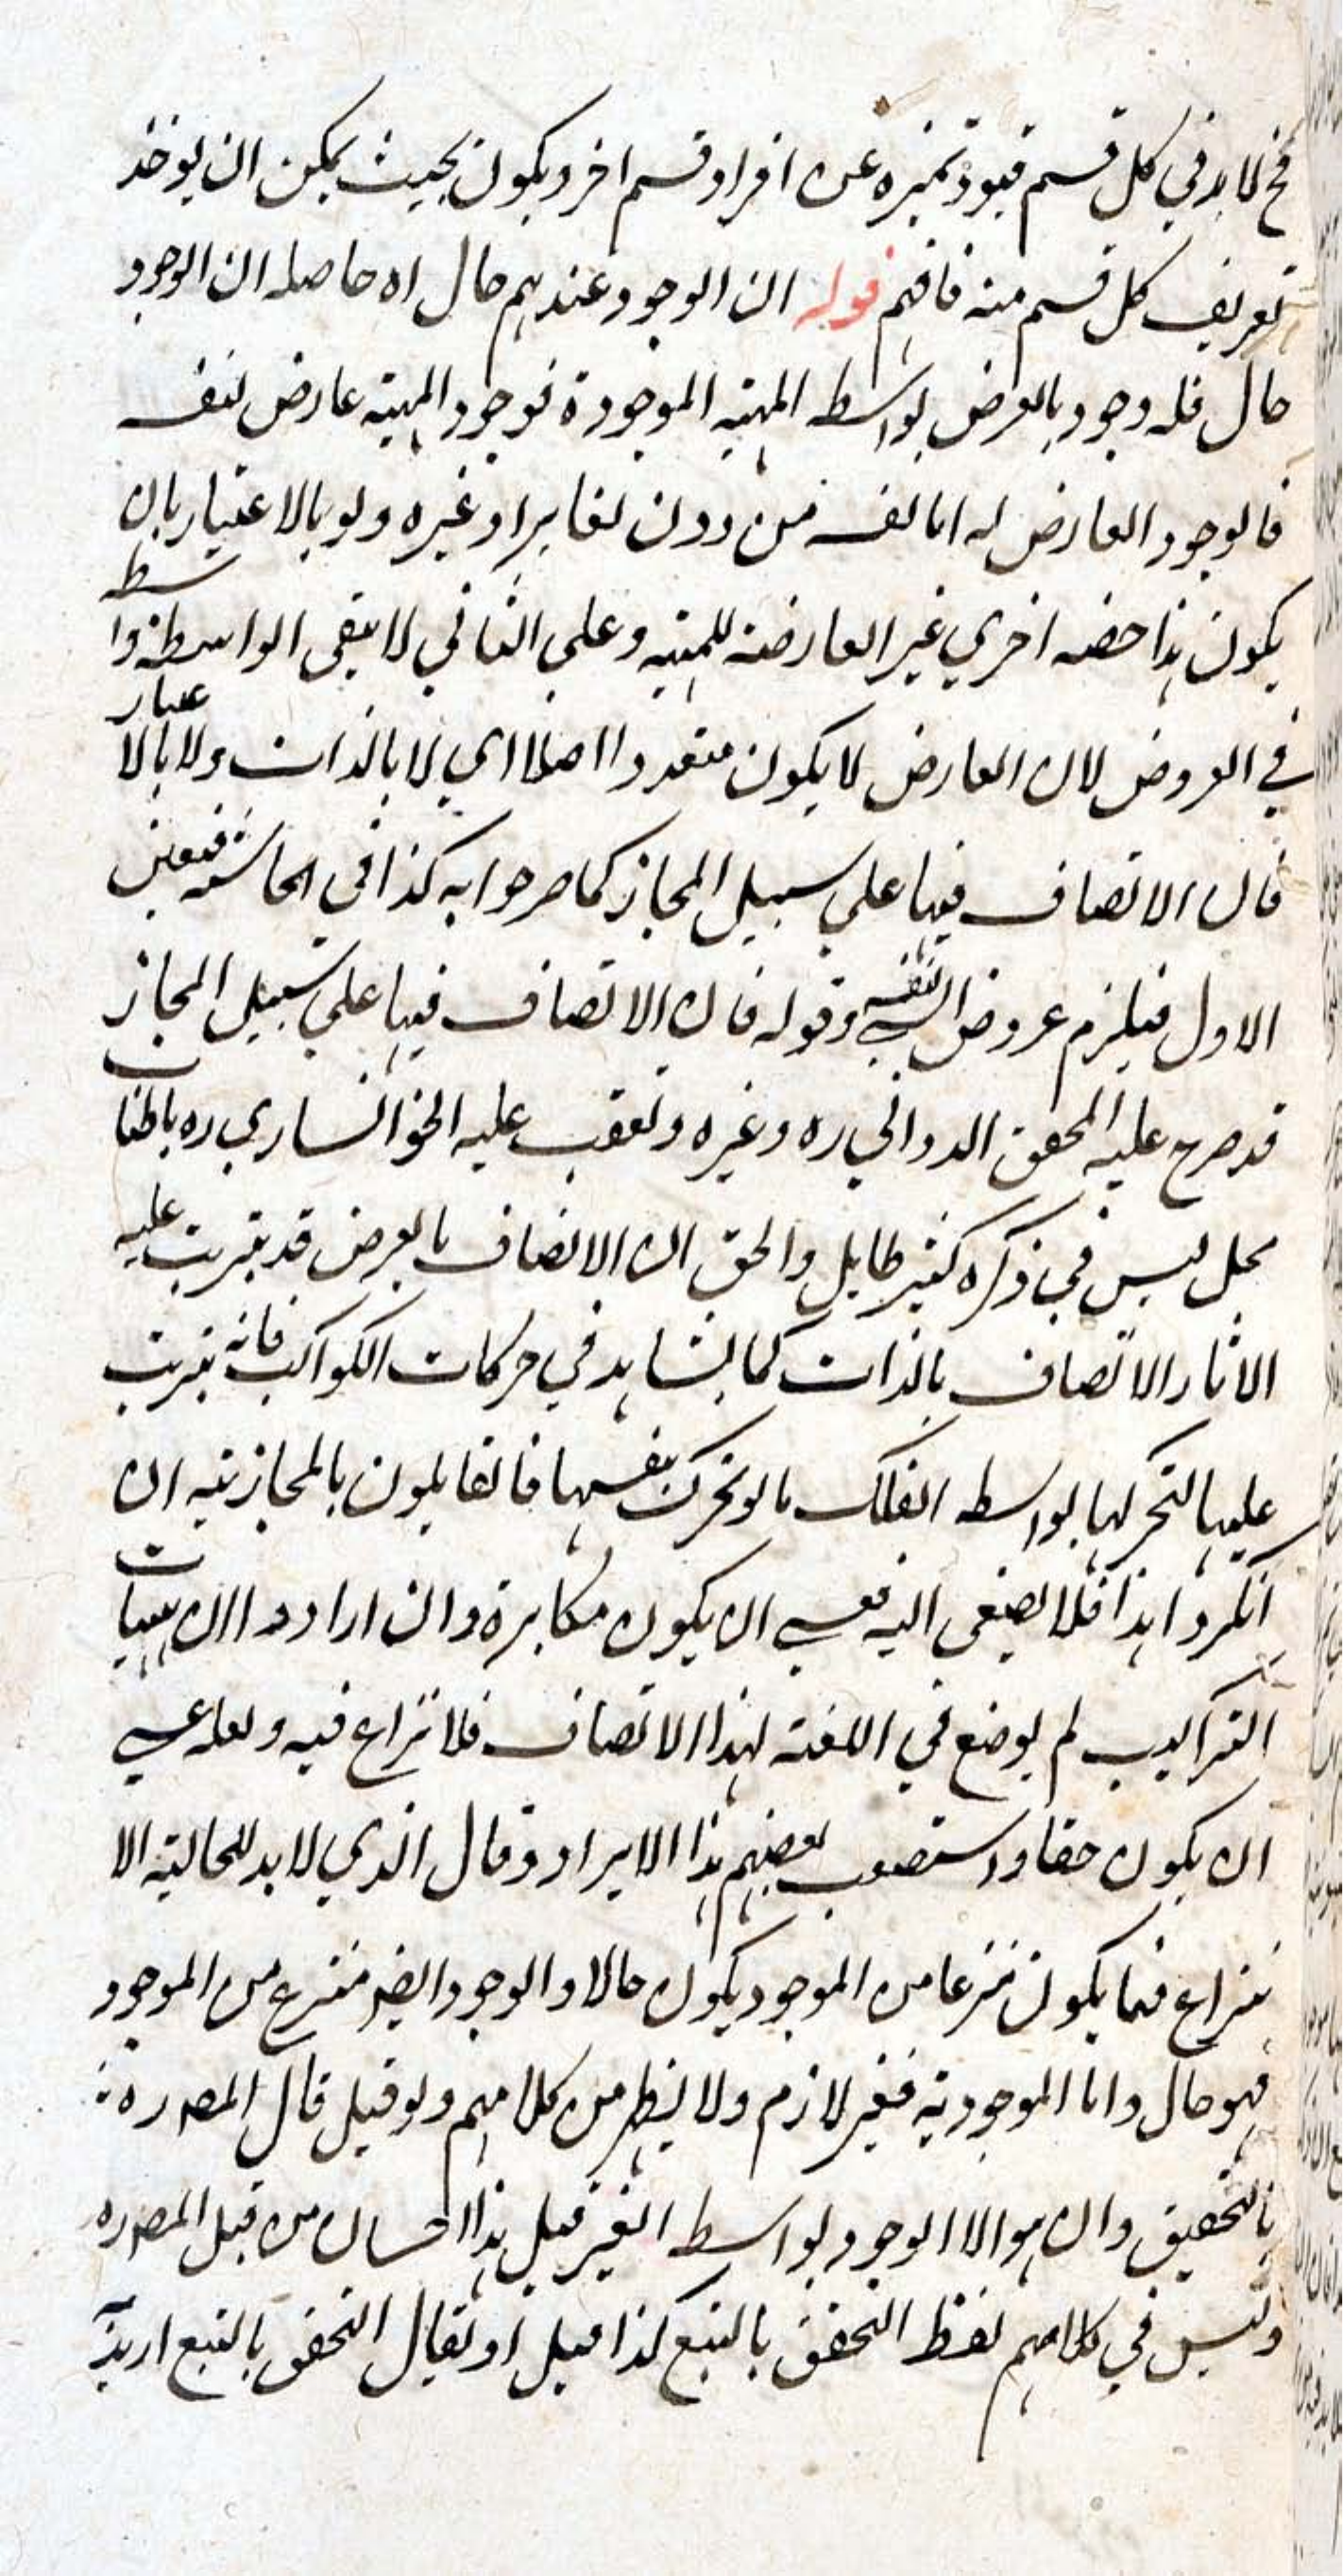 فح لا بد في كل قسم قيود تميزه عن افراد قسم اخر ويكون بحيث يمكن ان يوخذ
تعريف كل قسم منه فافهم قوله ان الوجود عندهم حال اه حاصله ان الوجود
حال فله وجود بالعرض بواسطه المهية الموجودة فوجود المهية عارض لنفسه
فالوجود العارض له اما نفسه من دون تغاير او غيره ولو بالاعتبار بان
يكون هذا حصه اخري غير العارضة للمهية وعلي الثاني لا يبقي الواسطة واسطه
في العروض لان العارض لا يكون متعددا اصلا اي لا بالذات ولا بالاعتبار
فان الاتصاف فيها علي سبيل المجاز كما صرحوا به كذا في الحاشية فتعين
الاول فيلزم عروض الشي لنفسه وقوله فان الاتصاف فيها علي سبيل المجاز
قد صرح عليه المحقق الدواني ره وغيره وتعقب عليه الخوانساري ره باطنابات
بحل ليس في ذكره كثير طايل والحق ان الاتصاف بالعرض قد يترتب عليه
الاثار الاتصاف بالذات كما يشاهد في حركات الكواكب فانه يترتب
عليها التحركها بواسطه الفلك ما لو تحرك بنفسها فالقايلون بالمجازيه ان
انكروا هذا فلا يصغي اليه فعسي ان يكون مكابرة وان ارادوا ان هيات
التراكيب لم يوضع في اللغة لهذا الاتصاف فلا نزاع فيه ولعله عسي
ان يكون حقا واستصعب بعضهم هذا الايراد وقال الذي لا بد للحالية الا
نتزاع فما يكون منتزعا من الموجود يكون حالا والوجود ايضا منتزع من الموجود
فهو حال واما الموجودية فغير لازم ولا يظهر من كلامهم ولو قيل قال المص ره
بالتحقيق وان هو الا الوجود بواسطه الغير قيل هذا احسان من قبل المص ره
وليس في كلامهم لفظ التحقق بالتبع كذا قيل او يقال التحقق بالتبع اريد